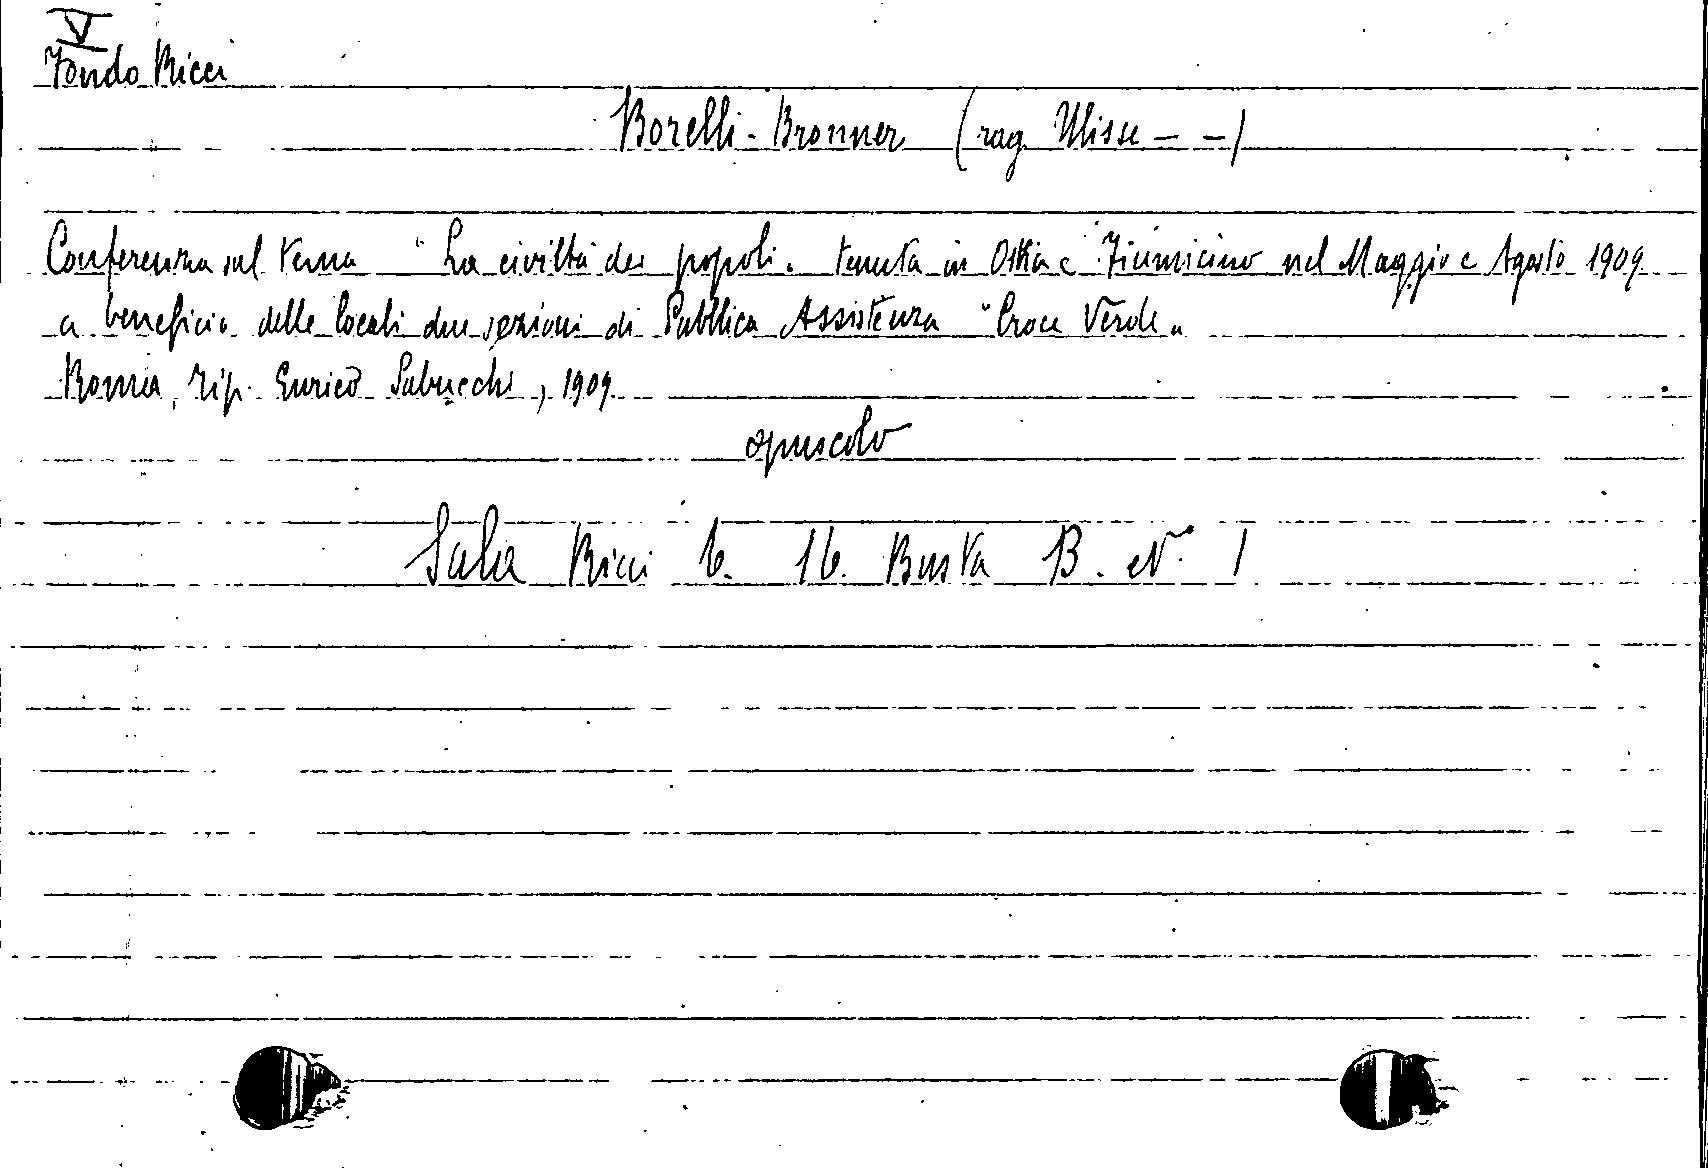 V
Fondo Ricci
Borelli-Bronner (rag. Ulisse - -)
Conferenza sul tema "La civiltà dei popoli" tenuta in Ostia e Fiumicino nel Maggio e Agosto 1909
a beneficio delle locali due sezioni di Pubblica Assistenza "Croce Verde"
Roma, tip. Enrico Sabucchi, 1909
opuscolo
Sala Ricci 6. 16. Busta B. N. 1